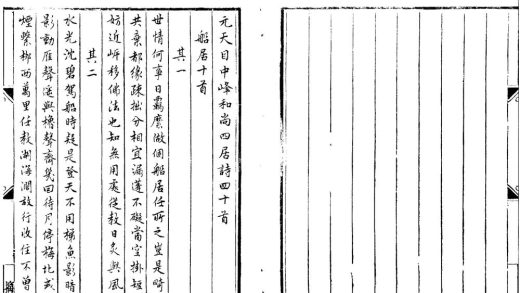 元天目中峰和尚四居詩四十首
船居十首
其一
世情何事日羈縻做個船居任所之豈是畸
共棄都緣疎拙分相宜漏蓬不礙當空掛短
妨近岸移佛法也知無用處從教日炙與風
其二
水光沈碧駕船時疑是登天不用梯魚影暗
影動雁聲遙與櫓聲齊幾回待月停梅北或
煙繫柳西萬里任教湖海濶放行收住不曾